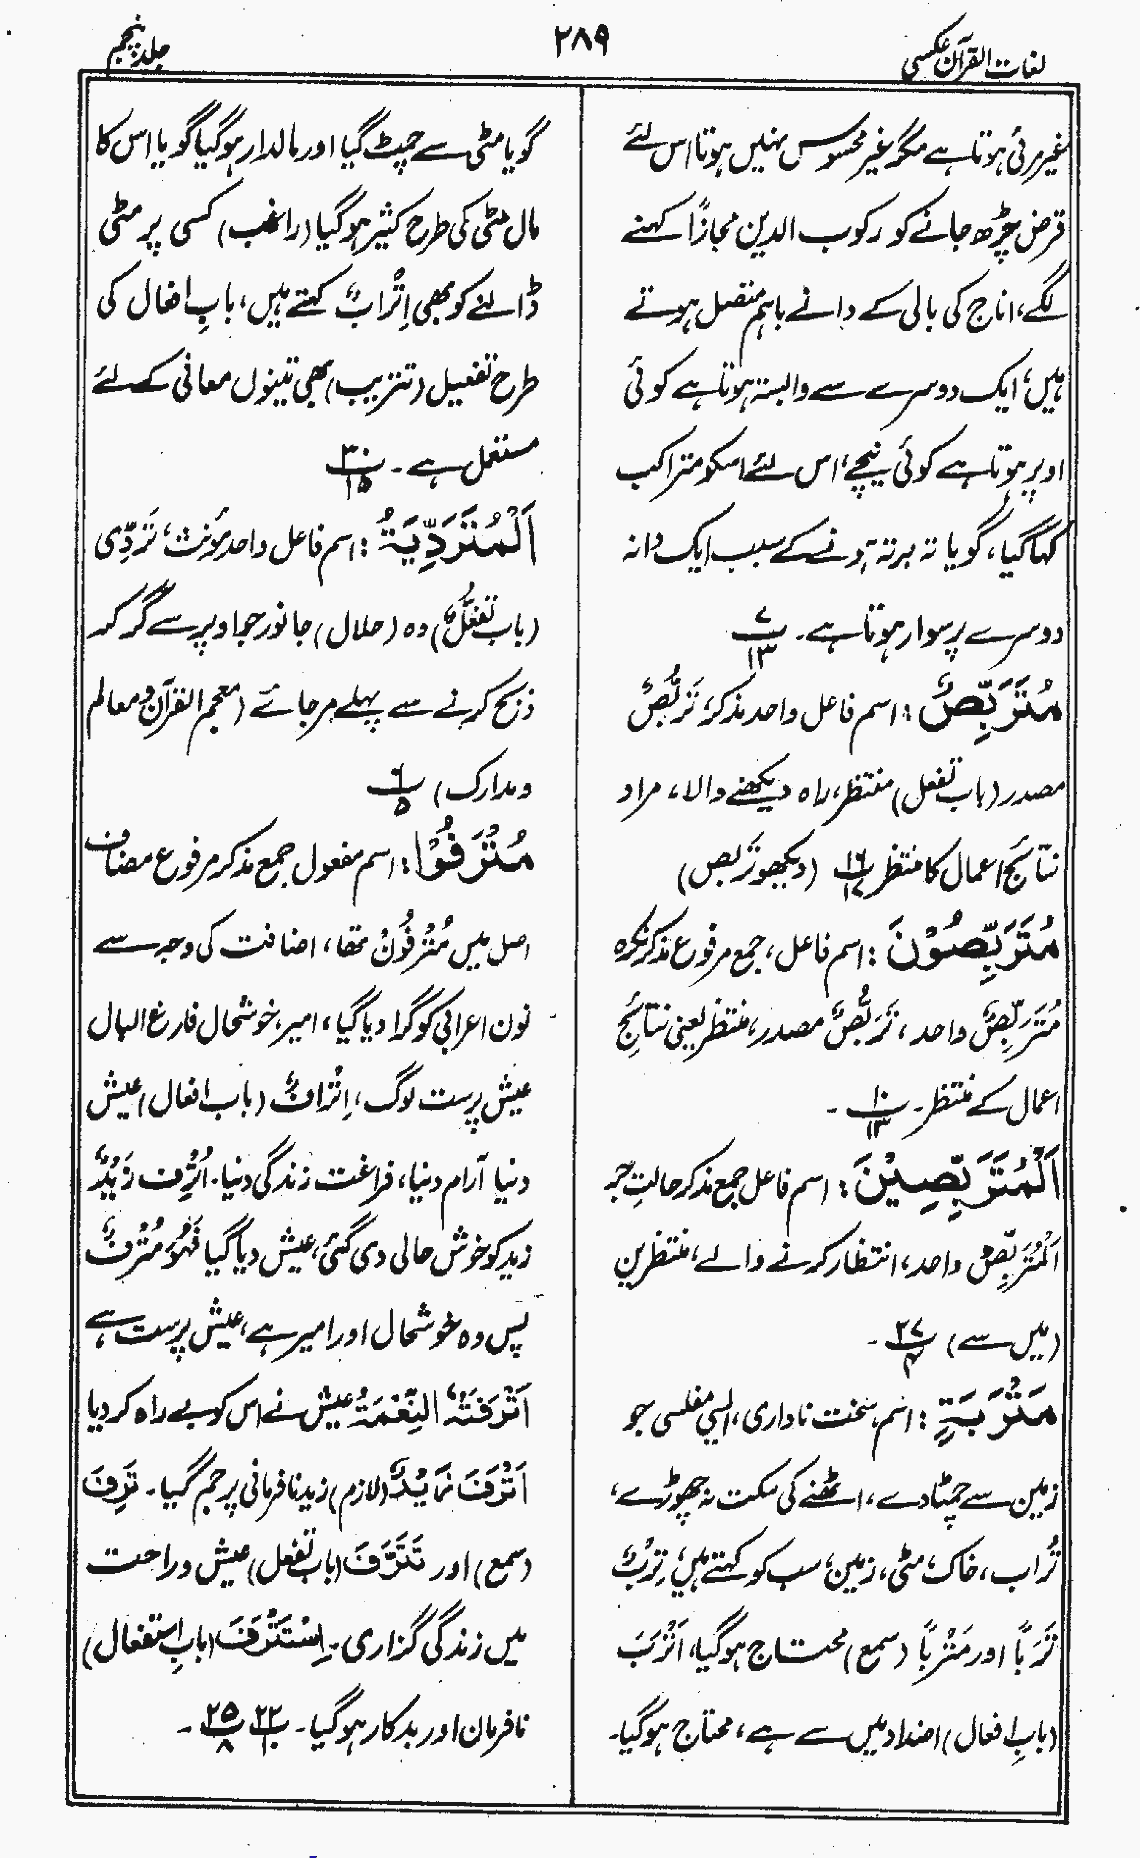 لغات القرآن عکسی
۲۸۹
جلد پنجم
غیر مرئی ہوتا ہے مگر غیر محسوس نہیں ہوتا اس لئے
قرض چڑھ جانے کو رکوب الدین مجازاً کہنے
لگے، اناج کی بالی کے دانے باہم متصل ہوتے
ہیں، ایک دوسرے سے وابستہ ہوتا ہے کوئی
اوپر ہوتا ہے کوئی نیچے، اس لئے اسکو متراکب
کہا گیا، گویا تہ برتہ ہونے کے سبب ایک دانہ
دوسرے پر سوار ہوتا ہے۔ ۷/۱۳
مُتَرَبِّصٌ : اسم فاعل واحد مذکر، تَرَبُّصٌ
مصدر (باب تفعل) منتظر، راہ دیکھنے والا، مراد
نتائج اعمال کا منتظر ۱۶/۱۷ (دیکھو تربص)
مُتَرَبِّصُوْنَ : اسم فاعل، جمع مرفوع مذکر نکرہ
مُتَرَبِّصٌ واحد، تَرَبُّصٌ مصدر، منتظر یعنی نتائج
اعمال کے منتظر۔ ۱۰/۱۳ ۔
اَلْمُتَرَبِّصِیْنَ : اسم فاعل جمع مذکر حالتِ جر
اَلْمُتَرَبِّصُ واحد، انتظار کرنے والے، منتظرین
(میں سے) ۲۷/۴ ۔
مَتْرَبَةٍ : اسم، سخت ناداری، ایسی مفلسی جو
زمین سے چمٹا دے، اٹھنے کی سکت نہ چھوڑے،
تُراب، خاک، مٹی، زمین، سب کو کہتے ہیں، تِرْبٌ
تَرَبًا اور مَتْرَبًا (سمع) محتاج ہو گیا، اَتْرَبَ
(باب اِفعال) اضداد میں سے ہے، محتاج ہو گیا۔
گویا مٹی سے چمٹ گیا اور مالدار ہو گیا گویا اس کا
مال مٹی کی طرح کثیر ہو گیا (راغب) کسی پر مٹی
ڈالنے کو بھی اِتْرابٌ کہتے ہیں، باب اِفعال کی
طرح تفعیل (تتریب) بھی تینوں معانی کے لئے
مستعمل ہے۔ ۳۰/۱۵
اَلْمُتَرَدِّیَةُ : اسم فاعل واحد مؤنث، تَرَدِّی
(باب تفعُّلٌ) وہ (حلال) جانور جو اوپر سے گر کر
ذبح کرنے سے پہلے مر جائے (معجم القرآن و معالم
و مدارک) ۶/۵
مُتْرَفُوْا : اسم مفعول جمع مذکر مرفوع مضاف
اصل میں مُتْرَفُوْنَ تھا، اضافت کی وجہ سے
نون اعرابی کو گرا دیا گیا، امیر، خوشحال فارغ البال
عیش پرست لوگ، اِتْرافٌ (باب افعال) عیش
دنیا آرام دنیا، فراغت زندگی دنیا۔ اُتْرِفَ زَیْدٌ
زید کو خوش حالی دی گئی، عیش دیا گیا فَهُوَ مُتْرَفٌ
پس وہ خوشحال اور امیر ہے، عیش پرست ہے
اَتْرَفَتْهُ النِّعْمَةُ عیش نے اس کو بے راہ کر دیا
اَتْرَفَ زَیْدٌ (لازم) زید نافرمانی پر جم گیا۔ تَرِفَ
(سمع) اور تَتَرَّفَ (باب تفعل) عیش و راحت
میں زندگی گزاری۔ اِسْتَتْرَفَ (باب اِستفعال)
نافرمان اور بدکار ہو گیا۔ ۲۲/۱۰ ۲۵/۸ ۔